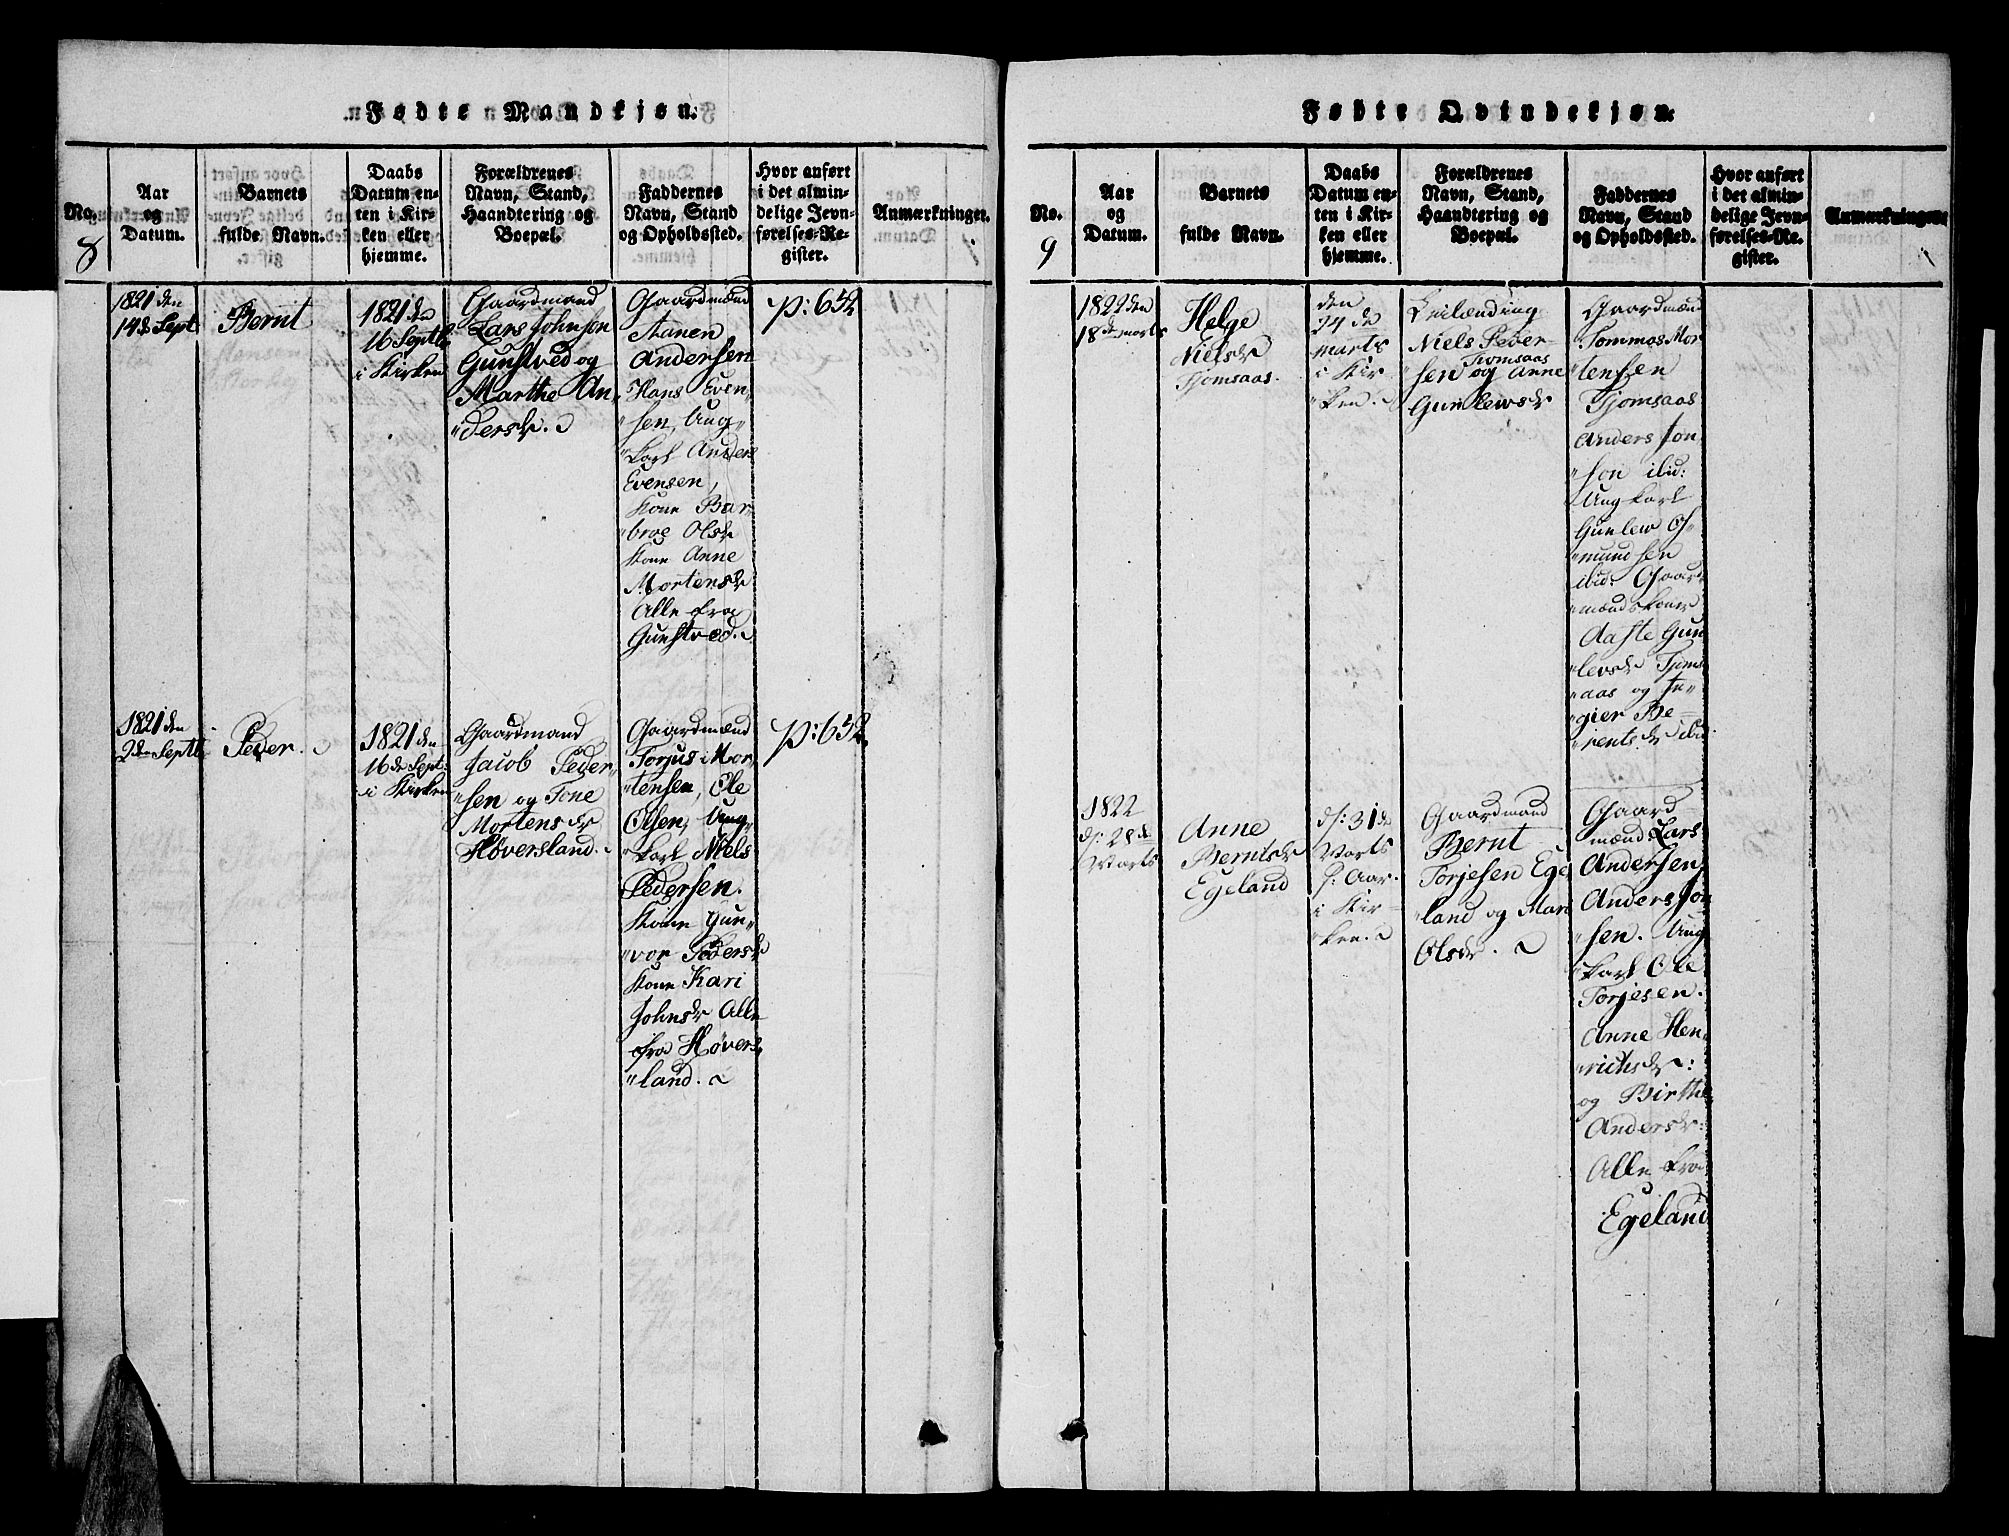 Fødte Mandkjøn.
No.
8
Aar
og
Datum.
Barnets
fulde Navn.
Daabs
Datum en-
ten i Kir-
ken eller
hjemme.
Forældrenes
Navn, Stand,
Haandtering og
Boepæl.
Faddernes
Navn, Stand
og Opholdssted.
Hvor anført
i det almin-
delige Jevn-
førelses-Re-
gister.
Anmærkninger.
1821 den
14de Sept
Bernt
1821 den
16 Septb
i Kirken
Gaardmand
Lars Johnsen
Gunstved og
Marthe An-
"dersdr.
Gaardmænd
Aanen
Andersen
Hans Even-
"sen, Ung-
"karl Anders
Evensen,
Kone Bar-
"broe Olsdr
Kone Anne
Mortensdr
Alle fra
Gunstved.
p: 652
1821 den
2den Septb
Peder.
1821 den
16de Sept:
i Kirken
Gaardmand
Jacob Peder-
"sen og Tone
Mortensdr
Høversland.
Gaardmænd
Torjus Mor-
"tensen, Ole
Olsen, Ung-
"karl Niels
Pedersen.
Kone Gun-
"vor Pedersdr
Kone Kari
Johnsdr Alle
fra Høvers-
"land.
p: 652
Fødte Qvindekjøn.
No.
9
Aar
og
Datum.
Barnets
fulde Navn.
Daabs
Datum en-
ten i Kir-
ken eller
hjemme.
Forældrenes
Navn, Stand,
Haandtering og
Boepæl.
Faddernes
Navn, Stand
og Opholdssted.
Hvor anført
i det almin-
delige Jevn-
førelses-Re-
gister.
Anmærkninger
1822 den
18de marts
Helge
Nielsdr
Tjomsaas.
den
24de
marts
i Kir-
"ken.
Leilænding
Niels Peder-
"sen Tjomsaas
og Anne
Gunlewsdr
Gaardmænd
Tommas Mor-
"tensen
Tjomsaas
Anders Jon-
"son ibid:
Ungkarl
Gunlew
"mundsen
ibid: Gaar-
"mændskoner
Aaste Gun-
"levsdr Tjoms-
"aas og
"gier Be-
"rentsdr ibid.
1822
d: 28de
Marts
Anne
Berntsdr
Egeland
d: 31de
Marts
s: Aar.
i Kir-
"ken.
Gaardmand
Bernt
Torjesen Ege-
"land og Mari
Olsdr.
Gaard-
mænd Lars
Andersen
Anders Jon-
"sen. Ung-
"karl Ole
Torjesen.
Anne Hen-
"richsdr:
og Birthe
Andersdr:
Alle fra
Egeland